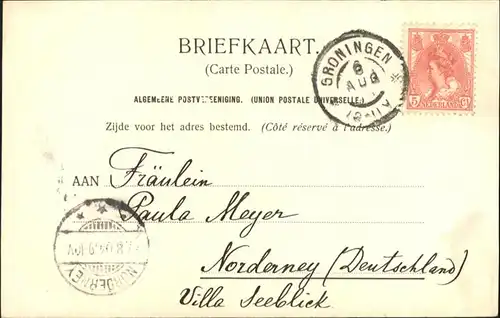 BRIEFKAART.
(Carte Postale.)
ALGEMEENE POSTVEREENIGING. (UNION POSTALE UNIVERSELLE.)
Zijde voor het adres bestemd. (Côté réservé à l'adresse.)
GRONINGEN
6
AUG
5 NEDERLAND CT
AAN Fräulein
Paula Meyer
Norderney (Deutschland)
Villa Seeblick
NORDERNEY